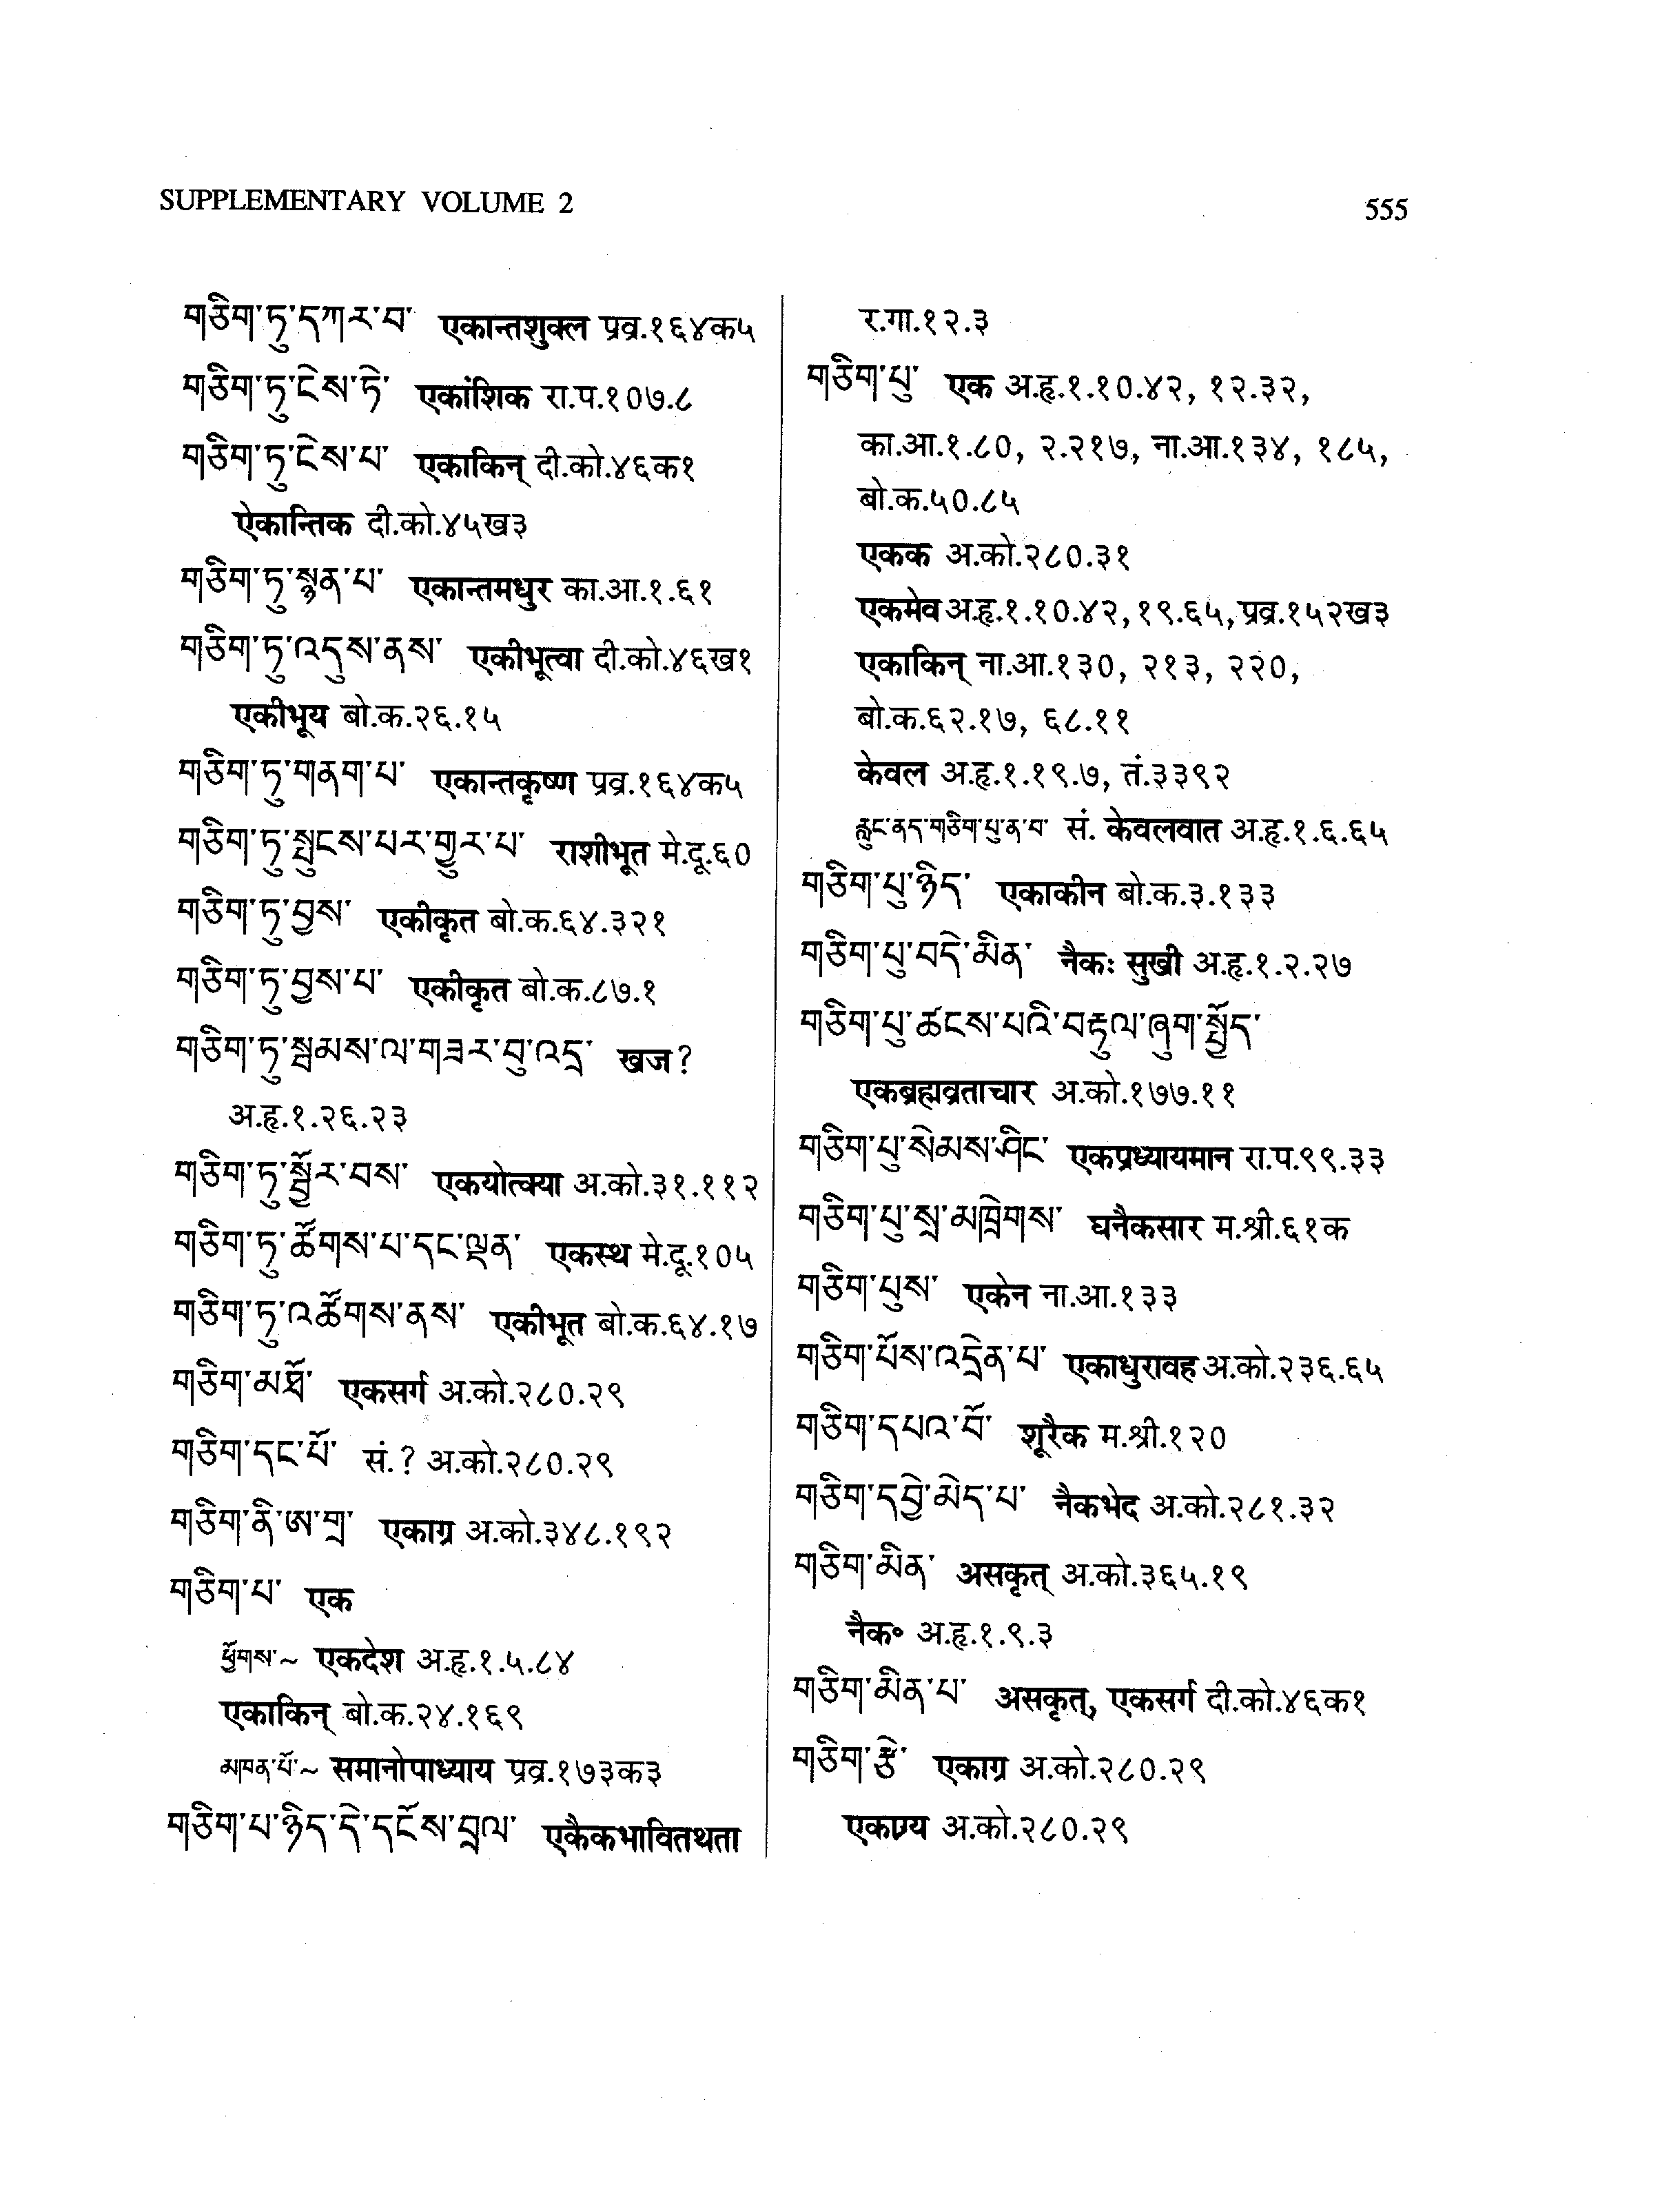 SUPPLEMENTARY VOLUME 2
555
གཅིག་ཏུ་དཀར་བ་ एकान्तशुक्ल प्रव्र.१६४क५
གཅིག་ཏུ་ངེས་ཏེ་ एकांशिक रा.प.१०७.८
གཅིག་ཏུ་ངེས་པ་ एकाकिन् दी.को.४६क१
ऐकान्तिक दी.को.४५ख३
གཅིག་ཏུ་སྙན་པ་ एकान्तमधुर का.आ.१.६१
གཅིག་ཏུ་འདུས་ནས་ एकीभूत्वा दी.को.४६ख१
एकीभूय बो.क.२६.१५
གཅིག་ཏུ་གནག་པ་ एकान्तकृष्ण प्रव्र.१६४क५
གཅིག་ཏུ་སྤུངས་པར་གྱུར་པ་ राशीभूत मे.दू.६०
གཅིག་ཏུ་བྱས་ एकीकृत बो.क.६४.३२१
གཅིག་ཏུ་བྱས་པ་ एकीकृत बो.क.८७.१
གཅིག་ཏུ་སྦམས་ལ་གཟར་བུ་འདྲ་ खज?
अ.हृ.१.२६.२३
གཅིག་ཏུ་སྦྱོར་བས་ एकयोत्क्या अ.को.३१.११२
གཅིག་ཏུ་ཚོགས་པ་དང་ལྡན་ एकस्थ मे.दू.१०५
གཅིག་ཏུ་འཚོགས་ནས་ एकीभूत बो.क.६४.१७
གཅིག་མཐོ་ एकसर्ग अ.को.२८०.२९
གཅིག་དང་པོ་ सं.? अ.को.२८०.२९
གཅིག་ནི་ཨ་གྲ་ एकाग्र अ.को.३४८.१९२
གཅིག་པ་ एक
ཕྱོགས་~ एकदेश अ.हृ.१.५.८४
एकाकिन् बो.क.२४.१६९
མཁན་པོ་~ समानोपाध्याय प्रव्र.१७३क३
གཅིག་པ་ཉིད་དེ་དངོས་བྲལ་ एकैकभावितथता
र.गा.१२.३
གཅིག་པུ་ एक अ.हृ.१.१०.४२, १२.३२,
का.आ.१.८०, २.२१७, ना.आ.१३४, १८५,
बो.क.५०.८५
एकक अ.को.२८०.३१
एकमेव अ.हृ.१.१०.४२, १९.६५, प्रव्र.१५२ख३
एकाकिन् ना.आ.१३०, २१३, २२०,
बो.क.६२.१७, ६८.११
केवल अ.हृ.१.१९.७, तं.३३९२
རླུང་ནད་གཅིག་པུ་ན་བ་ सं. केवलवात अ.हृ.१.६.६५
གཅིག་པུ་ཉིད་ एकाकीन बो.क.३.१३३
གཅིག་པུ་བདེ་མིན་ नैकः सुखी अ.हृ.१.२.२७
གཅིག་པུ་ཚངས་པའི་བརྟུལ་ཞུག་སྤྱོད་
एकब्रह्मव्रताचार अ.को.१७७.११
གཅིག་པུ་སེམས་ཤིང་ एकप्रध्यायमान रा.प.९९.३३
གཅིག་པུ་སྲ་མཁྲེགས་ घनैकसार म.श्री.६१क
གཅིག་པུས་ एकेन ना.आ.१३३
གཅིག་པོས་འདྲེན་པ་ एकाधुरावह अ.को.२३६.६५
གཅིག་དཔའ་བོ་ शूरैक म.श्री.१२०
གཅིག་དབྱེ་མེད་པ་ नैकभेद अ.को.२८१.३२
གཅིག་མིན་ असकृत् अ.को.३६५.१९
नैक॰ अ.हृ.१.९.३
གཅིག་མིན་པ་ असकृत्, एकसर्ग दी.को.४६क१
གཅིག་རྩེ་ एकाग्र अ.को.२८०.२९
अ.को.२८०.२९